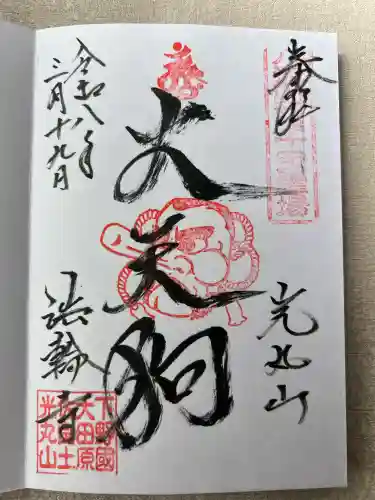 奉拝
光丸山
大天狗
令和八年
三月十九日
法輪寺
下野國
大田原
佐久土
光丸山